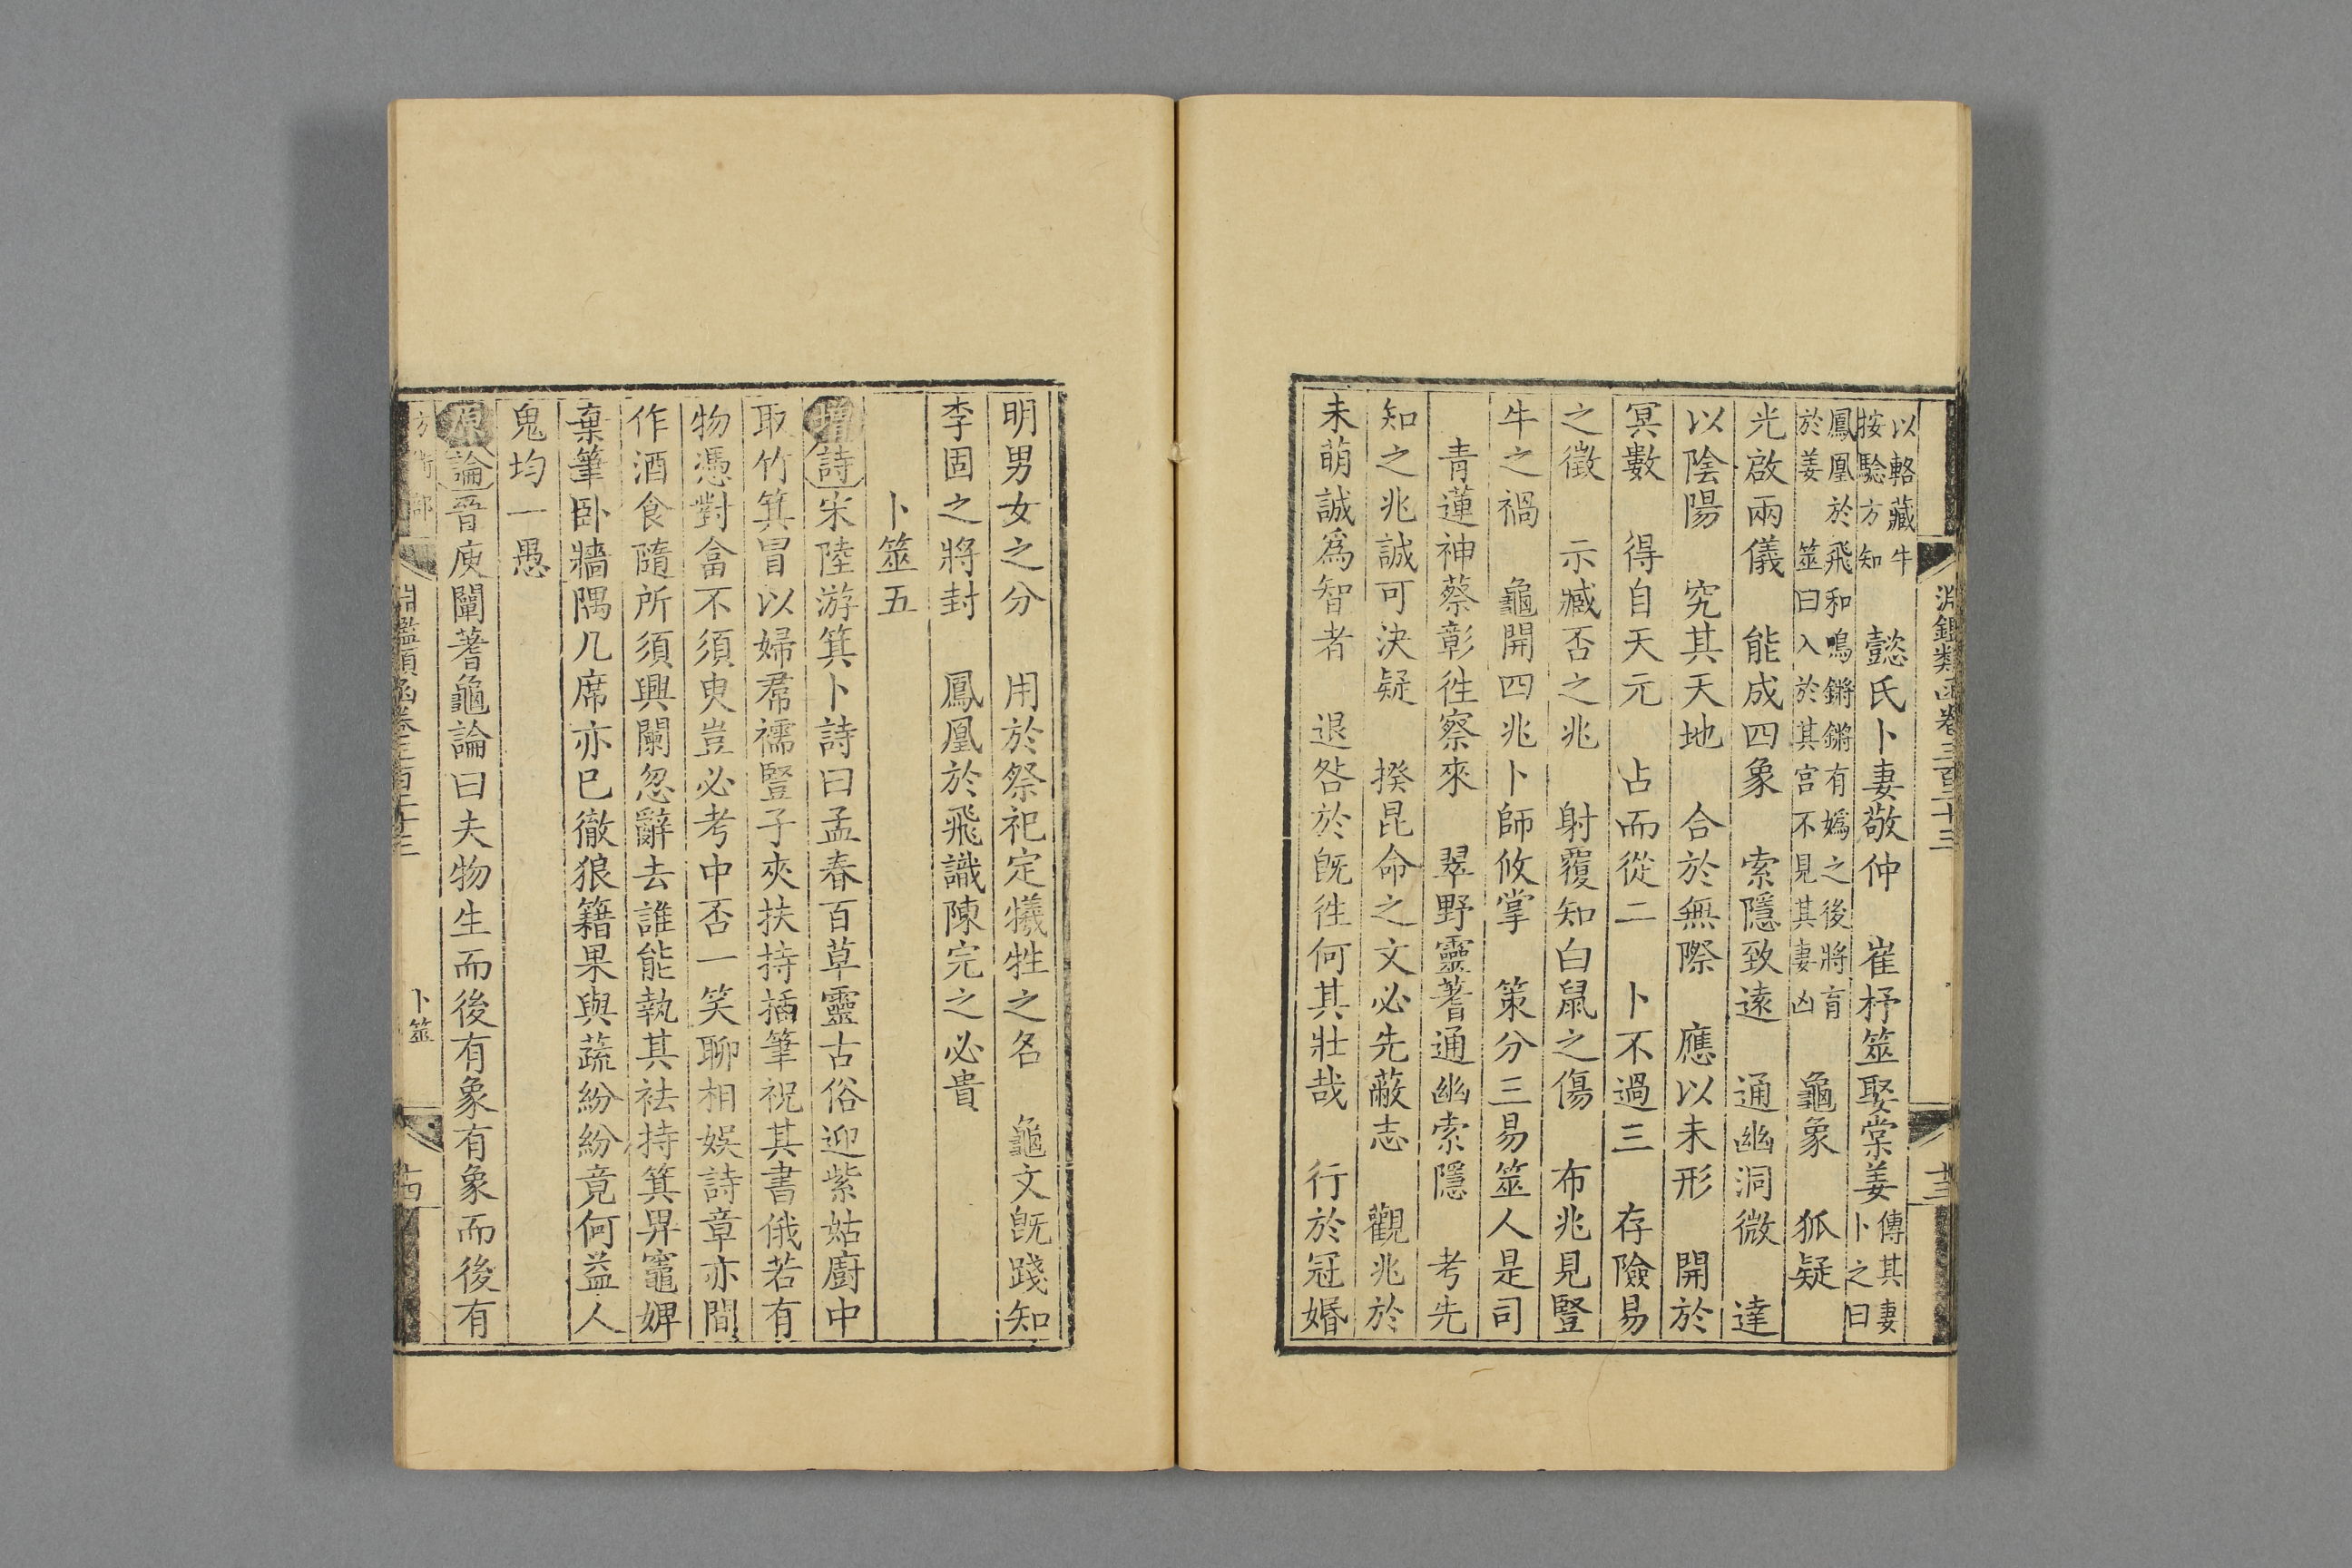 淵鑑類函卷三百二十三
十三
以輅藏牛
按驗方知
懿氏卜妻敬仲　崔杼筮娶棠姜
傳其妻
卜之曰
鳳凰於飛和鳴鏘鏘有嬀之後將育
於姜　筮曰入於其宮不見其妻凶
龜象　狐疑
光啟兩儀　能成四象　索隱致遠　通幽洞微　達
以陰陽　究其天地　合於無際　應以未形　開於
冥數　得自天元　占而從二　卜不過三　存險易
之徵　示臧否之兆　射覆知白鼠之傷　布兆見豎
牛之禍　龜開四兆卜師攸掌　策分三易筮人是司
青蓮神蔡彰徃察來　翠野靈蓍通幽索隱　考先
知之兆誠可決疑　揆昆命之文必先蔽志　觀兆於
未萌誠爲智者　退咎於旣徃何其壯哉　行於冠婚
明男女之分　用於祭祀定犧牲之名　龜文旣踐知
李固之將封　鳳凰於飛識陳完之必貴
卜筮五
增詩宋陸游箕卜詩曰孟春百草靈古俗迎紫姑廚中
取竹箕冒以婦帬襦豎子夾扶持插筆祝其書俄若有
物憑對畣不須臾豈必考中否一笑聊相娛詩章亦間
作酒食隨所須興闌忽辭去誰能執其袪持箕畀竈婢
棄筆臥牆隅几席亦已徹狼籍果與蔬紛紛竟何益人
鬼均一愚
原論晉庾闡蓍龜論曰夫物生而後有象有象而後有
方術部
淵鑑類函卷三百二十三
卜筮
十四